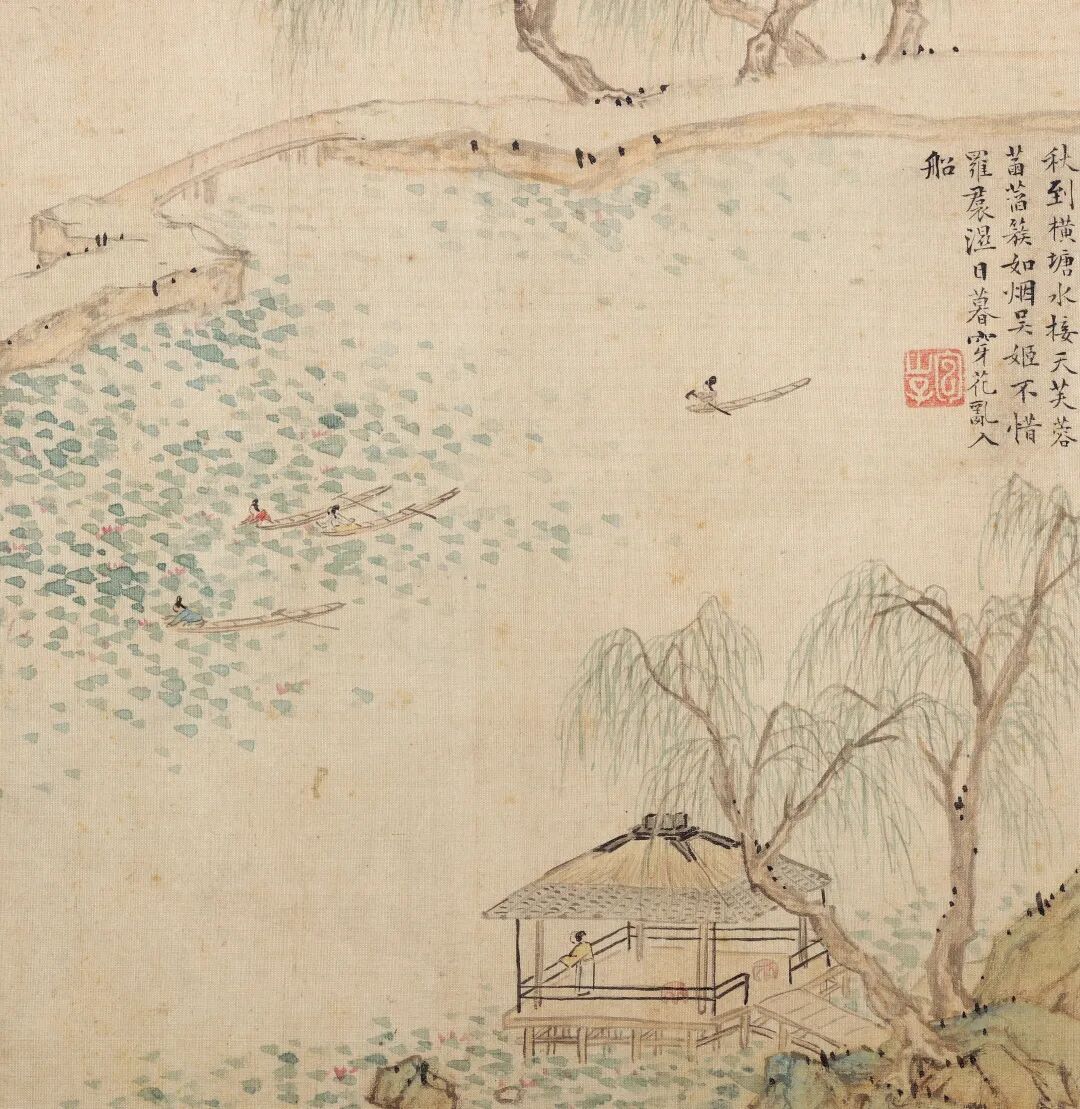 秋到橫塘水接天芙蓉
菡萏簇如烟吴姬不惜
羅裠濕日暮穿花亂入
船